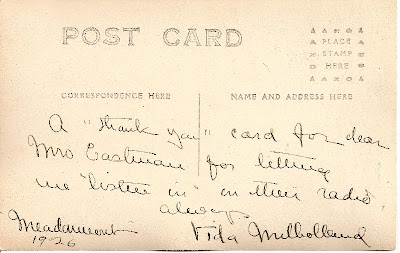 POST CARD
PLACE
STAMP
HERE
CORRESPONDENCE HERE
NAME AND ADDRESS HERE
A "thank you" card for dear
Mrs Eastman for letting
me "listen in" on their radio
always
Meadowmount
1926
Vida Milholland